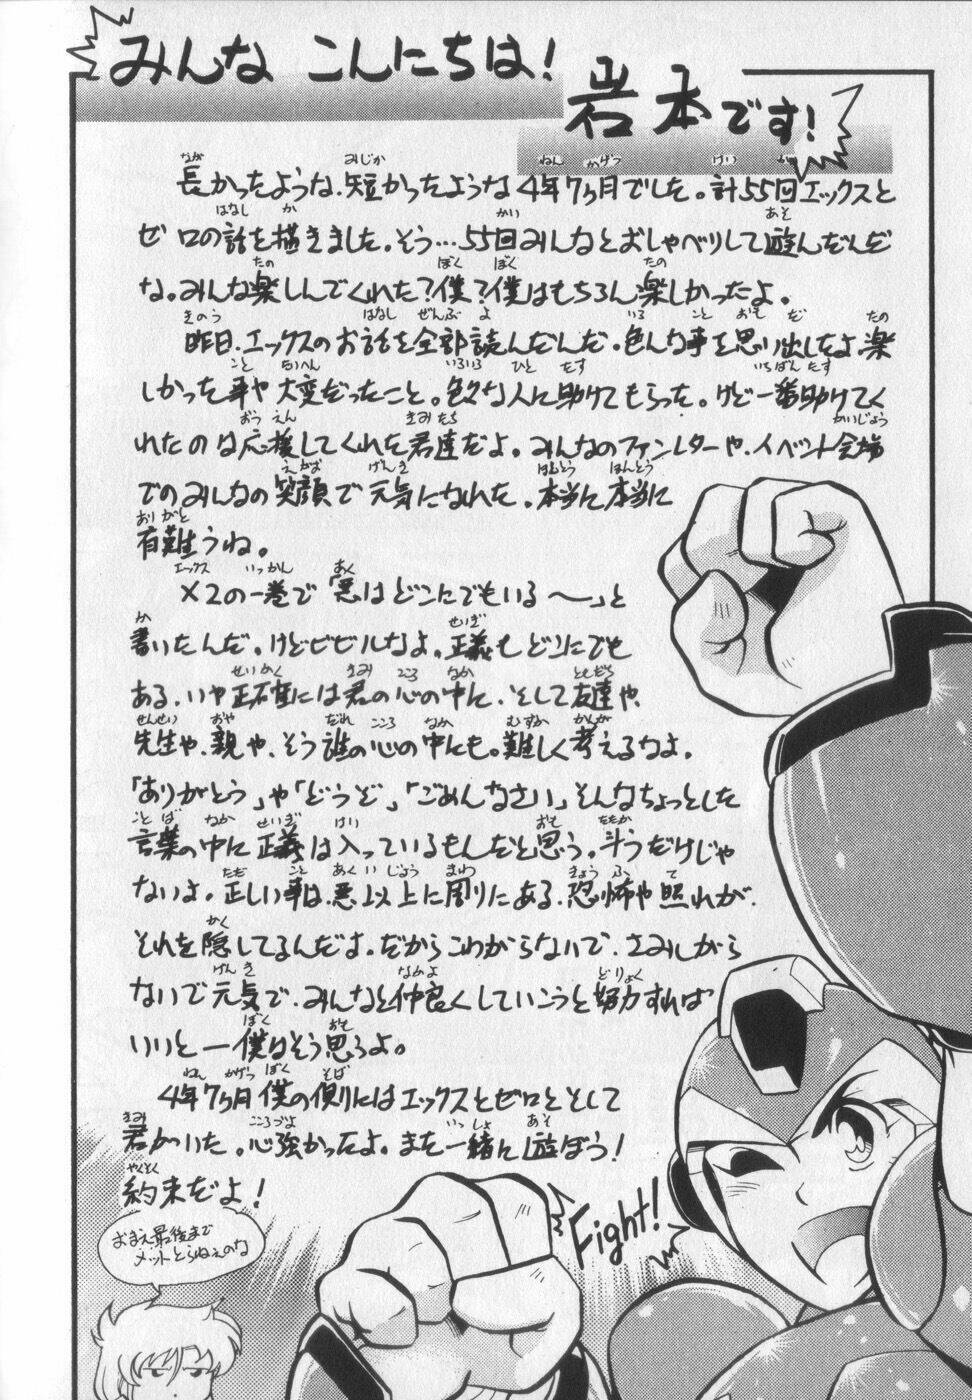 みんな こんにちは!
岩本です!
長かったような、短かったような4年7ヶ月でした。計55回エックスと
ゼロの話を描きました。そう…55回みんなとおしゃべりして遊んだんだ
な。みんな楽しんでくれた?僕?僕はもちろん楽しかったよ。
昨日、エックスのお話を全部読んだんだ。色んな事を思い出したよ楽
しかった事や大変だったこと。色々な人に助けてもらった。けど一番助けてく
れたのは応援してくれた君達だよ。みんなのファンレターや、イベント会場
でのみんなの笑顔で元気になれた。本当に本当に
有難うね。
X2の一巻で「悪はどこにでもいる〜」と
書いたんだ。けどビビルなよ。正義もどこにでも
ある、いや正確には君の心の中に、そして友達や、
先生や、親や、そう誰の心の中にも。難しく考えるなよ。
「ありがとう」や「どうぞ」「ごめんなさい」そんなちょっとした
言葉の中に正義は入っているもんだと思う。斗うだけじゃ
ないよ。正しい事は、悪以上に周りにある、恐怖や照れが、
それを隠してるんだよ。だからこわがらないで、さみしがら
ないで元気で、みんなと仲良くしていこうと努力すれば
いいと一僕はそう思うよ。
4年7ヶ月僕の側にはエックスとゼロとそして
君がいた。心強かったよ。また一緒に遊ぼう!
約束だよ!
おまえ最後まで
メットとらねぇのな
Fight!